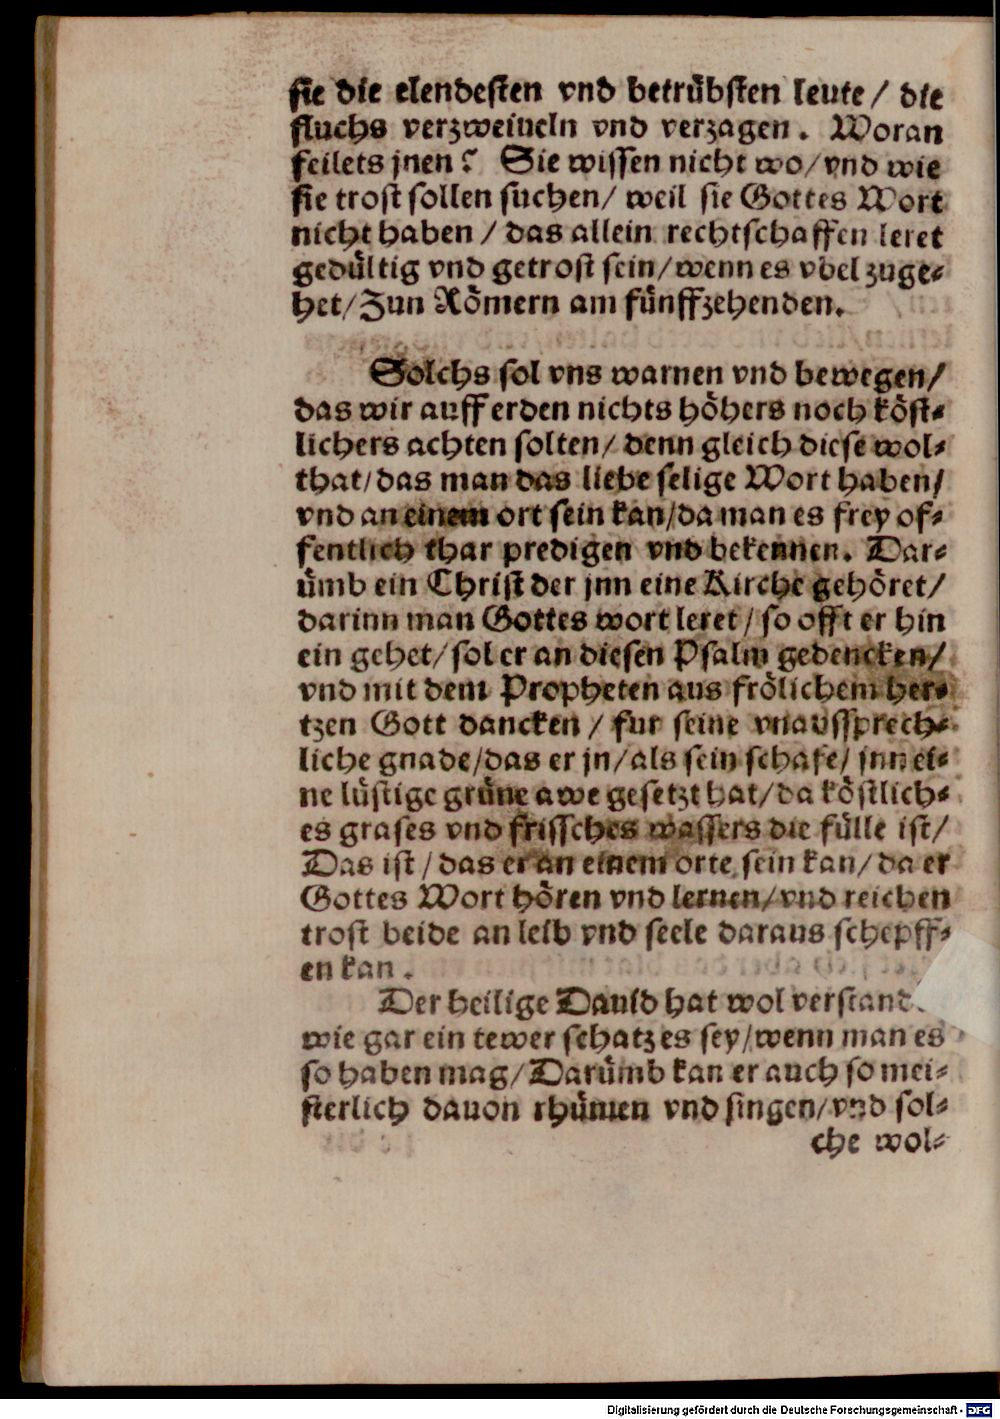 sie die elendesten vnd betrübsten leute / die
fluchs verzweiueln vnd verzagen. Woran
feilets jnen? Sie wissen nicht wo/vnd wie
sie trost sollen suchen/ weil sie Gottes Wort
nicht haben / das allein rechtschaffen leret
gedültig vnd getrost sein/wenn es vbel zuge-
het/Zun Römern am fünffzehenden.
Solchs sol vns warnen vnd bewegen/
das wir auff erden nichts höhers noch köst-
lichers achten solten/ denn gleich diese wol-
that/das man das liebe selige Wort haben/
vnd an einem ort sein kan/da man es frey of-
fentlich thar predigen vnd bekennen. Dar-
ümb ein Christ der jnn eine Kirche gehöret/
darinn man Gottes wort leret / so offt er hin
ein gehet/ sol er an diesen Psalm gedencken/
vnd mit dem Propheten aus frölichem her-
tzen Gott dancken / fur seine vnaussprech-
liche gnade/das er jn/als sein schafe/ jnn ei-
ne lüstige grüne awe gesetzt hat/da köstlich-
es grases vnd frissches wassers die fülle ist/
Das ist / das er an einem orte sein kan/da er
Gottes Wort hören vnd lernen/vnd reichen
trost beide an leib vnd seele daraus schepff-
en kan.
Der heilige Dauid hat wol
wie gar ein tewer schatz es sey/wenn man es
so haben mag/Darümb kan er auch so mei-
sterlich dauon rhümen vnd singen/vnd sol-
che wol-
Digitalisierung gefördert durch die Deutsche Forschungsgemeinschaft - DFG